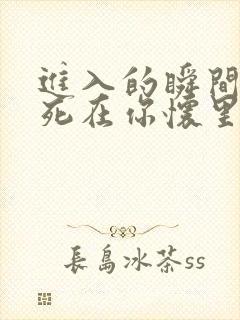 進入的瞬間
死在你懷里
長島冰茶ss